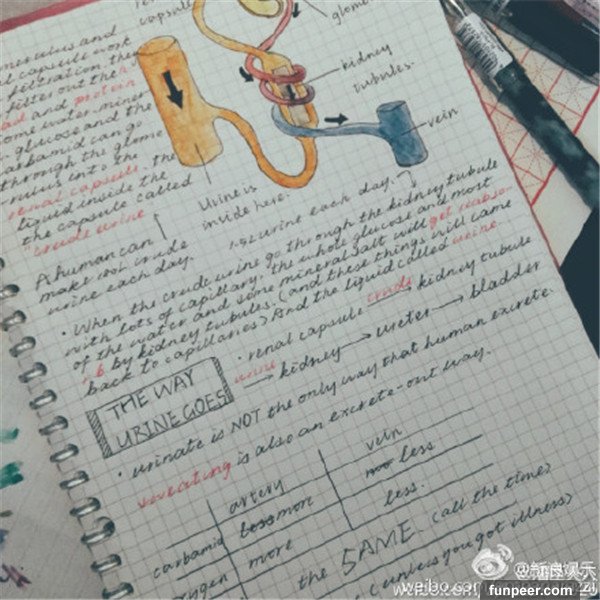 capsule
glome
merulus and
capsule work
filtration, the
filter out the
and protein
some water, miner
glucose and the
carbamid can go
through the glome
rulus into the
renal capsule. the
liquid inside the
the capsule called
"crude urine
kidney
tubules.
vein
Urine is
inside here.
A human can
make crude
urine each day.
urine each day.
· When the crude urine go through the kidney tubule
with lots of capillary. the whole glucose and most
of the water and some mineral salt will get reabso-
rb by kidney tubules. (and these things will came
back to capillaries) And the liquid called urine.
· renal capsule crude urine kidney tubule
→ kidney → ureter → bladder
THE WAY
URINE GOES
· urinate is NOT the only way that human excrete.
sweating is also an excrete-out way.
artery
vein
carbamid
more
less
more
less.
the SAME (all the time)
(unless you got illness)
@新浪娱乐
weibo.com
funpeer.com